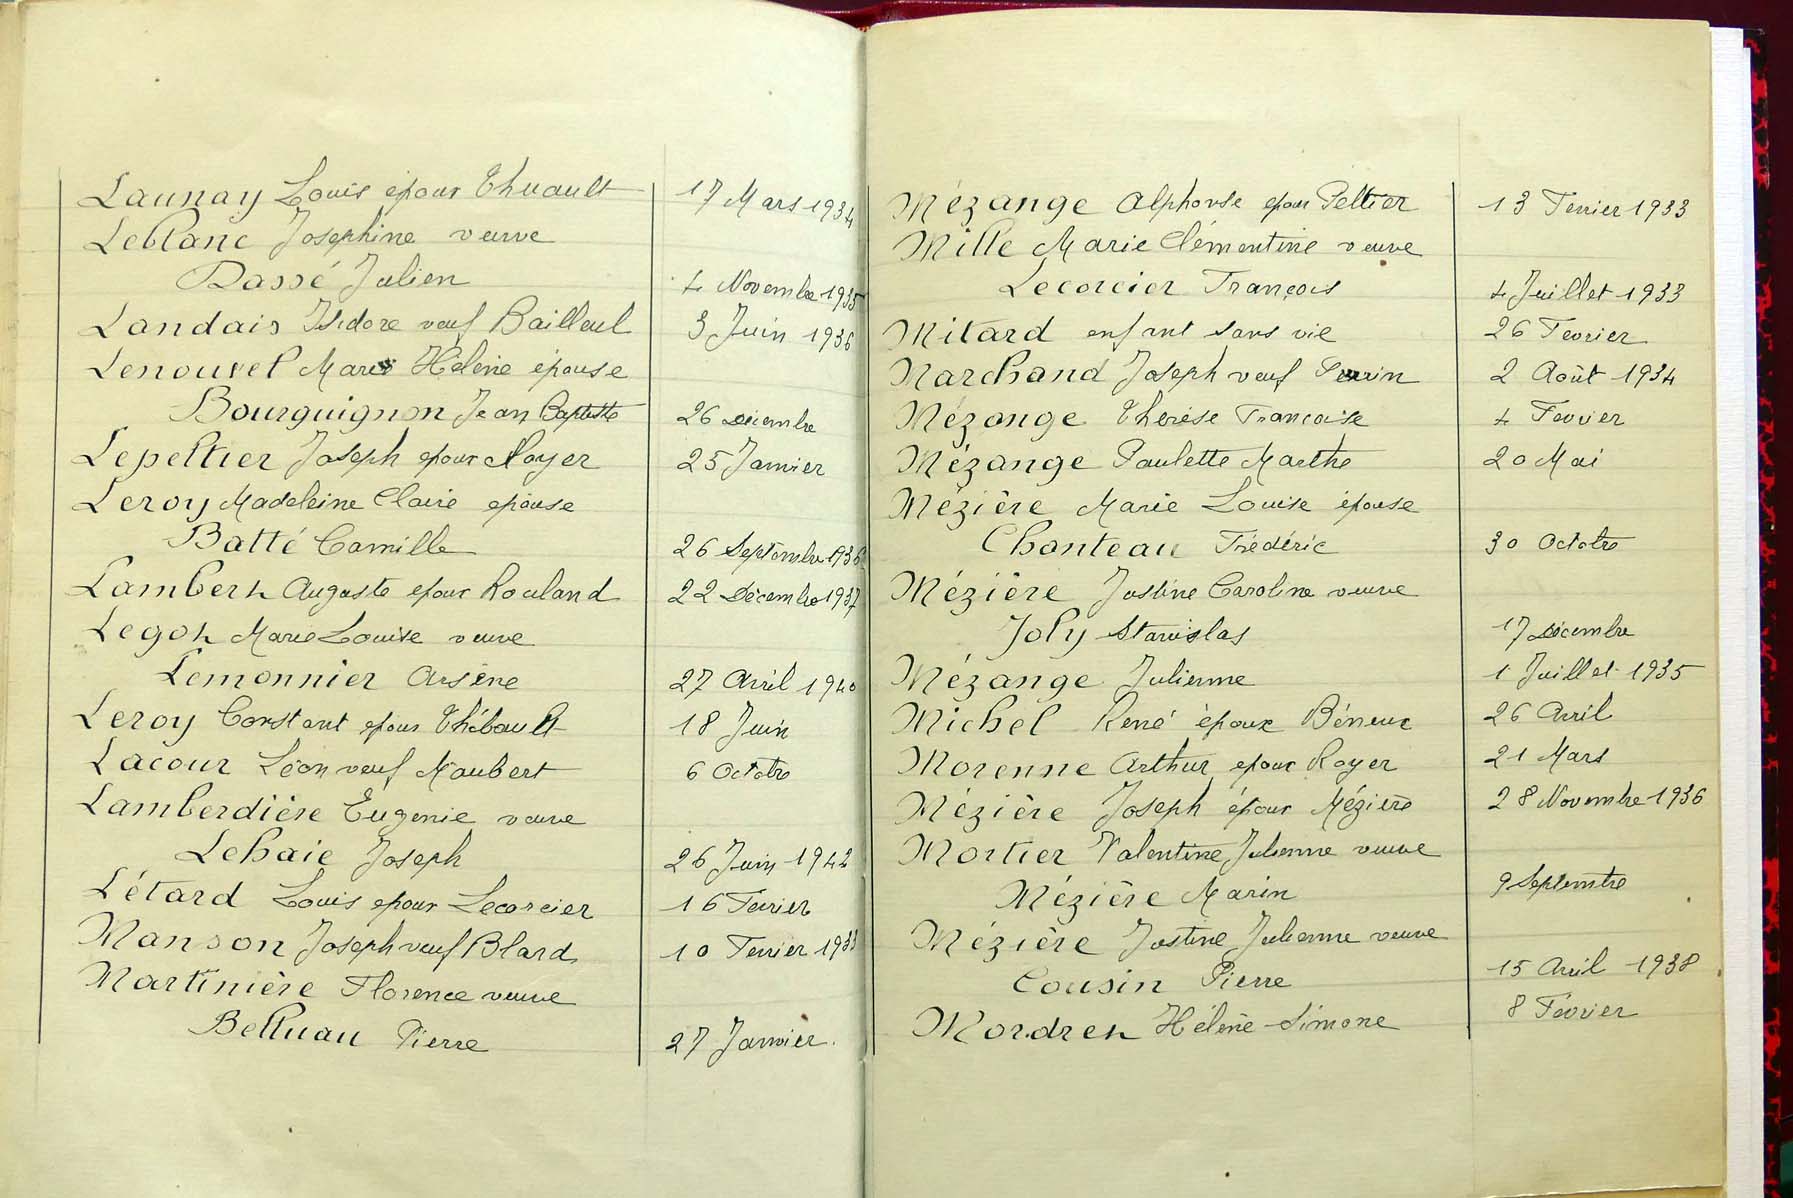 Launay Louis époux Thuault 17 Mars 1934
Leblanc Josephine veuve
Dassé Julien 4 Novembre 1935
Landais Isidore veuf Bailleul 3 Juin 1936
Lenouvel Marie Hélène épouse
Bourguignon Jean Baptiste 26 Décembre
Lepeltier Joseph époux Noyer 25 Janvier
Leroy Madeleine Claire épouse
Batté Camille 26 Septembre 1936
Lambert Auguste époux Rouland 22 Décembre 1937
Legot Marie Louise veuve
Lemonnier Arsène 27 Avril 1940
Leroy Constant époux Thébault 18 Juin
Lacour Léon veuf Maubert 6 Octobre
Lamberdière Eugenie veuve
Lehaie Joseph 26 Juin 1942
Létard Louis epoux Lecorcier 16 Fevrier
Manson Joseph veuf Blard 10 Fevrier 1933
Martinière Florence veuve
Belluau Pierre 27 Janvier.
Mézange Alphonse epoux Peltier 13 Fevrier 1933
Mille Marie Clémentine veuve
Lecorcier François 4 Juillet 1933
Mitard enfant sans vie 26 Fevrier
Marchand Joseph veuf Perrin 2 Août 1934
Mézange Thérèse Francoise 4 Fevrier
Mézange Paulette Marthe 20 Mai
Mézière Marie Louise épouse
Chanteau Frédéric 30 Octobre
Mézière Justine Caroline veuve
Joly Stanislas 17 Décembre
Mézange Julienne 1 Juillet 1935
Michel René époux Béneux 26 Avril
Morenne Arthur epoux Royer 21 Mars
Mézière Joseph époux Mézière 28 Novembre 1936
Mortier Valentine Julienne veuve
Mézière Marin 9 Septembre
Mézière Justine Julienne veuve
Cousin Pierre 15 Avril 1938
Mordret Hélène Simone 8 Février